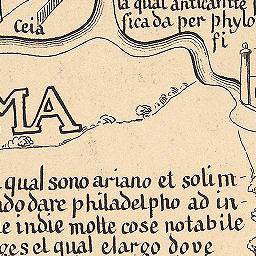 la qual anticante
Ceiá
ficada per phylo
fi
MA
qual sono ariano et solim-
dare philadelpho ad in-
e indie molte cose notabile
ges el qual e largo dove